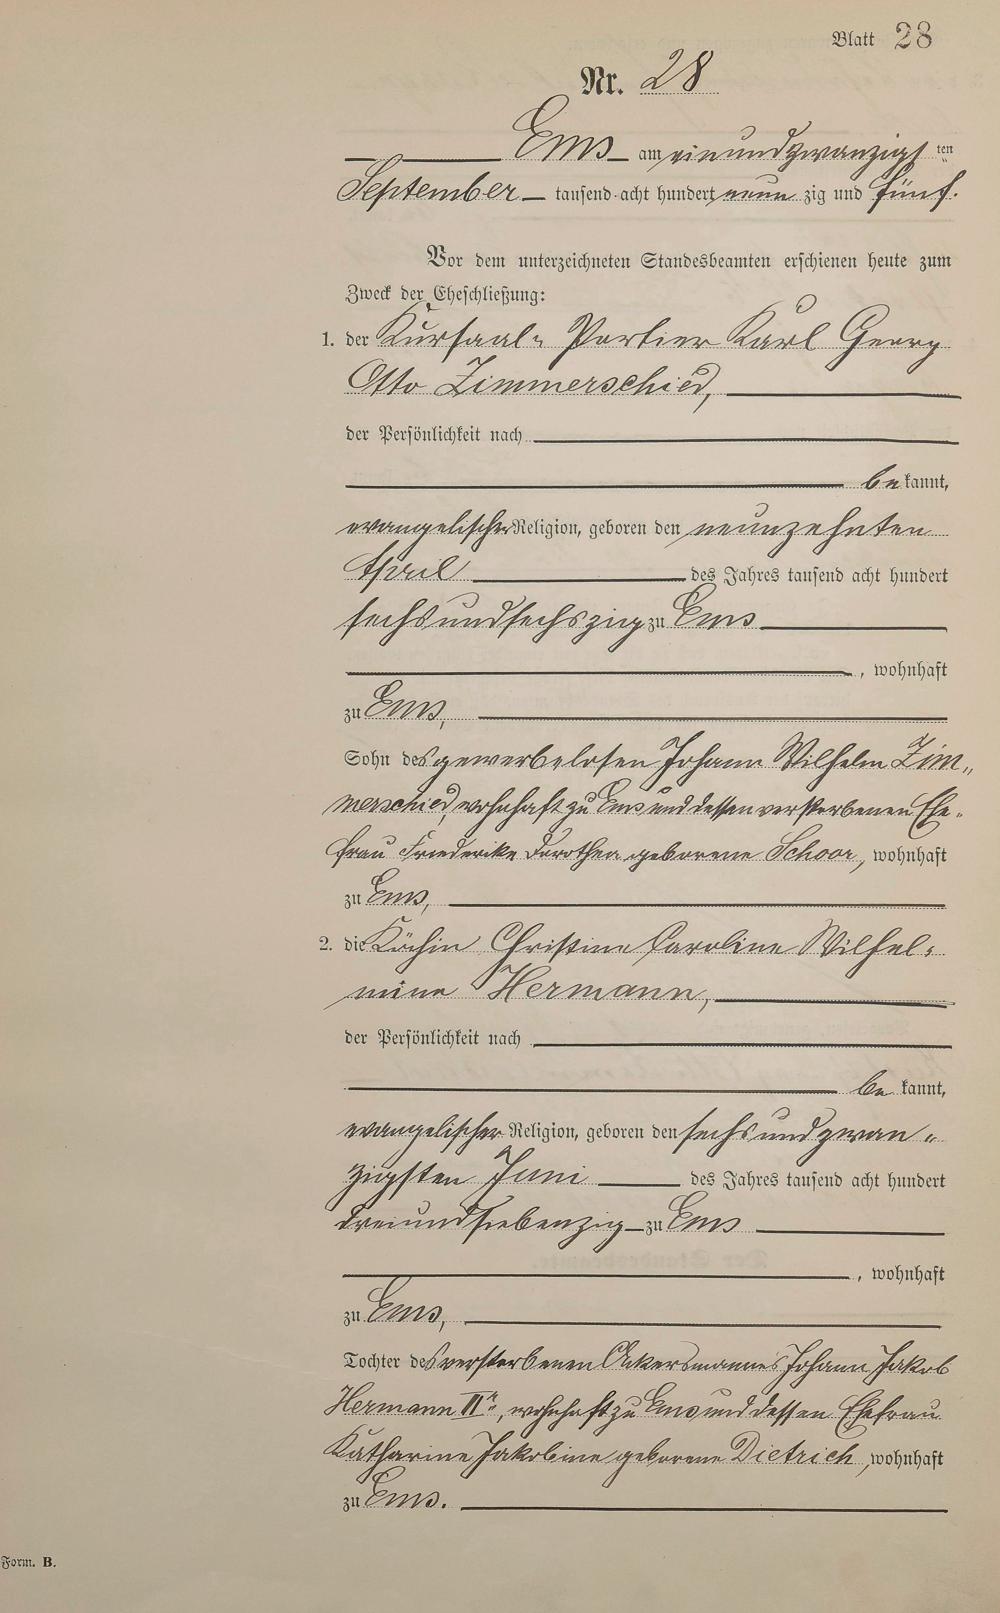 Blatt 28
Nr. 28
Ems am einundzwanzigsten
September tausend acht hundert neun zig und fünf.
Vor dem unterzeichneten Standesbeamten erschienen heute zum
Zweck der Eheschließung:
1. der Kursaal- Portier Karl Georg
Otto Zimmerschied,
der Persönlichkeit nach
be kannt,
evangelischer Religion, geboren den neunzehnten
April des Jahres tausend acht hundert
sechsundsechszig zu Ems
, wohnhaft
zu Ems,
Sohn des gewerbelosen Johann Wilhelm Zim-
merschied, wohnhaft zu Ems und dessen verstorbenen Ehe-
frau Friederike Dorothea geborene Schoor, wohnhaft
zu Ems,
2. die Köchin Christine Caroline Wilhel-
mine Hermann,
der Persönlichkeit nach
be kannt,
evangelischer Religion, geboren den sechsundzwan-
zigsten Juni des Jahres tausend acht hundert
dreiundsiebenzig zu Ems
, wohnhaft
zu Ems,
Tochter des verstorbenen Ackersmannes Johann Jakob
Hermann IIr, wohnhaft zu Ems und dessen Ehefrau
Katharine Jakobine geborene Dietrich, wohnhaft
zu Ems.
Form. B.